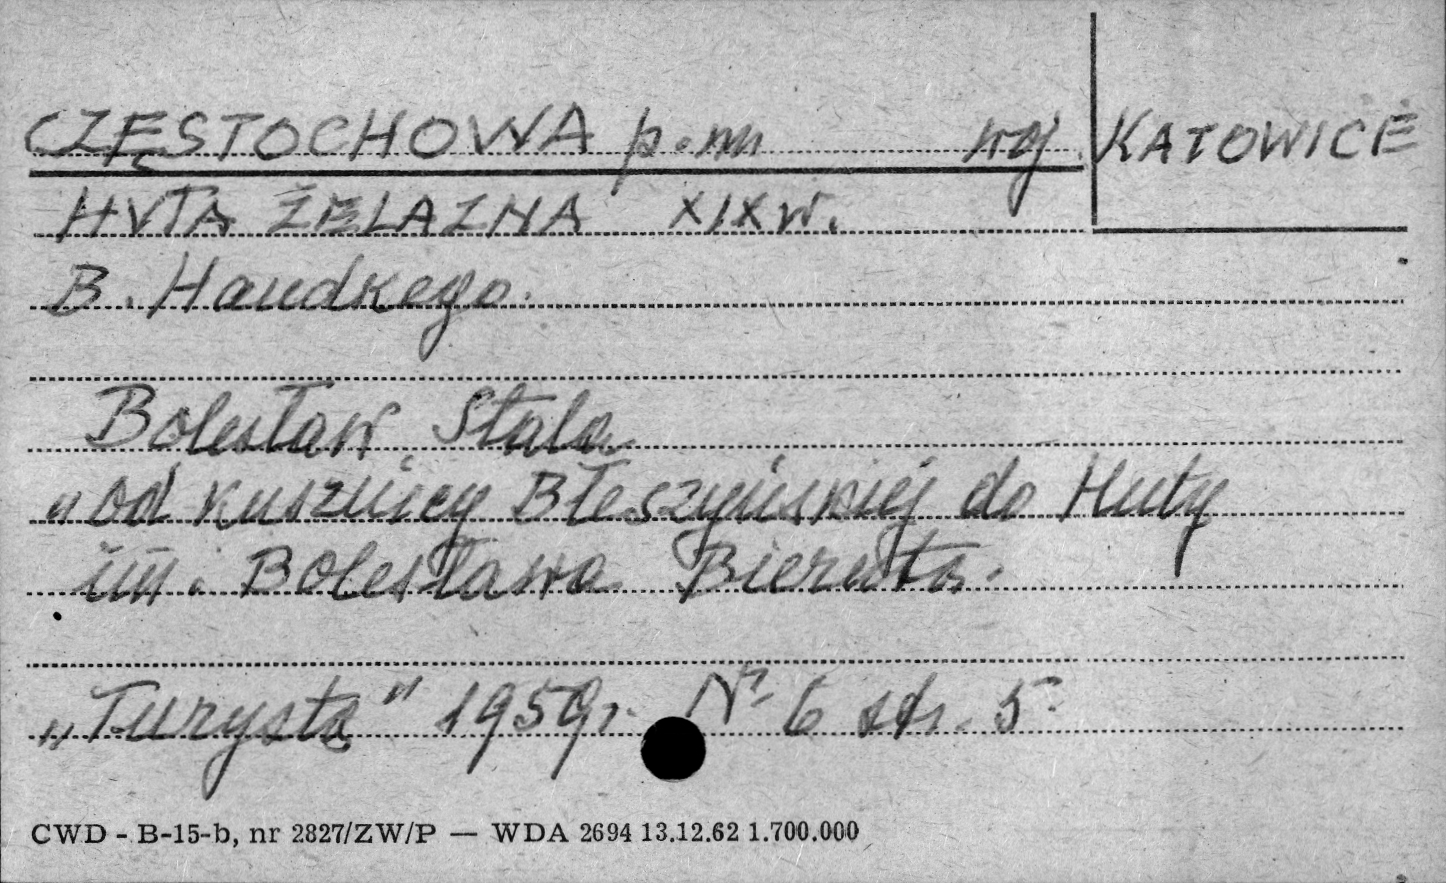 CZĘSTOCHOWA p.m woj. KATOWICE
HUTA ŻELAZNA XIX w.
B. Handkego.
Bolesław Stala
„od kusznicy Błeszyńskiej do Huty
im. Bolesława Bieruta.
„Turysta" 1959r. Nr 6 str. 5
CWD - B-15-b, nr 2827/ZW/P — WDA 2694 13.12.62 1.700.000